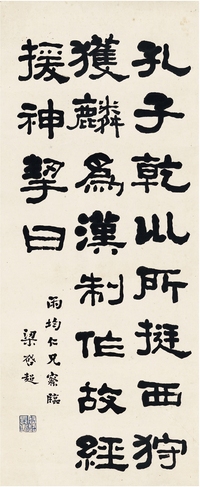 孔子乾巛所挺西狩
獲麟為漢制作故經
援神挈曰
雨均仁兄屬臨
梁啓超